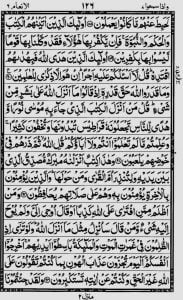 واذا سمعوا ٧ ١٢٦ الانعام ٦
عنهم ما كانوا يعملون اولٓئك الذين اتينهم الكتب
والحكم والنبوة فان يكفر بها هٓؤلاء فقد وكلنا بها قوما
ليسوا بها بكفرين اولٓئك الذين هدى الله فبهدىهم
اقتده قل لا اسئلكم عليه اجرا ان هو الا ذكرى للعلمين
وما قدروا الله حق قدره اذ قالوا ما انزل الله على بشر من
شيء قل من انزل الكتب الذي جاء به موسى نورا و
هدى للناس تجعلونه قراطيس تبدونها وتخفون كثيرا
وعلمتم ما لم تعلموا انتم ولا اباؤكم قل الله ثم ذرهم في
خوضهم يلعبون وهذا كتب انزلنه مبرك مصدق الذي
بين يديه ولتنذر ام القرى ومن حولها والذين يؤمنون
بالاخرة يؤمنون به وهم على صلاتهم يحافظون ومن
اظلم ممن افترى على الله كذبا او قال اوحي الي ولم يوح
اليه شيء ومن قال سانزل مثل ما انزل الله ولو ترى اذ
الظلمون في غمرت الموت والملٓئكة باسطوا ايديهم اخرجوا
انفسكم اليوم تجزون عذاب الهون بما كنتم تقولون على
الله غير الحق وكنتم عن ايته تستكبرون ولقد جئتمونا
منزل ٢